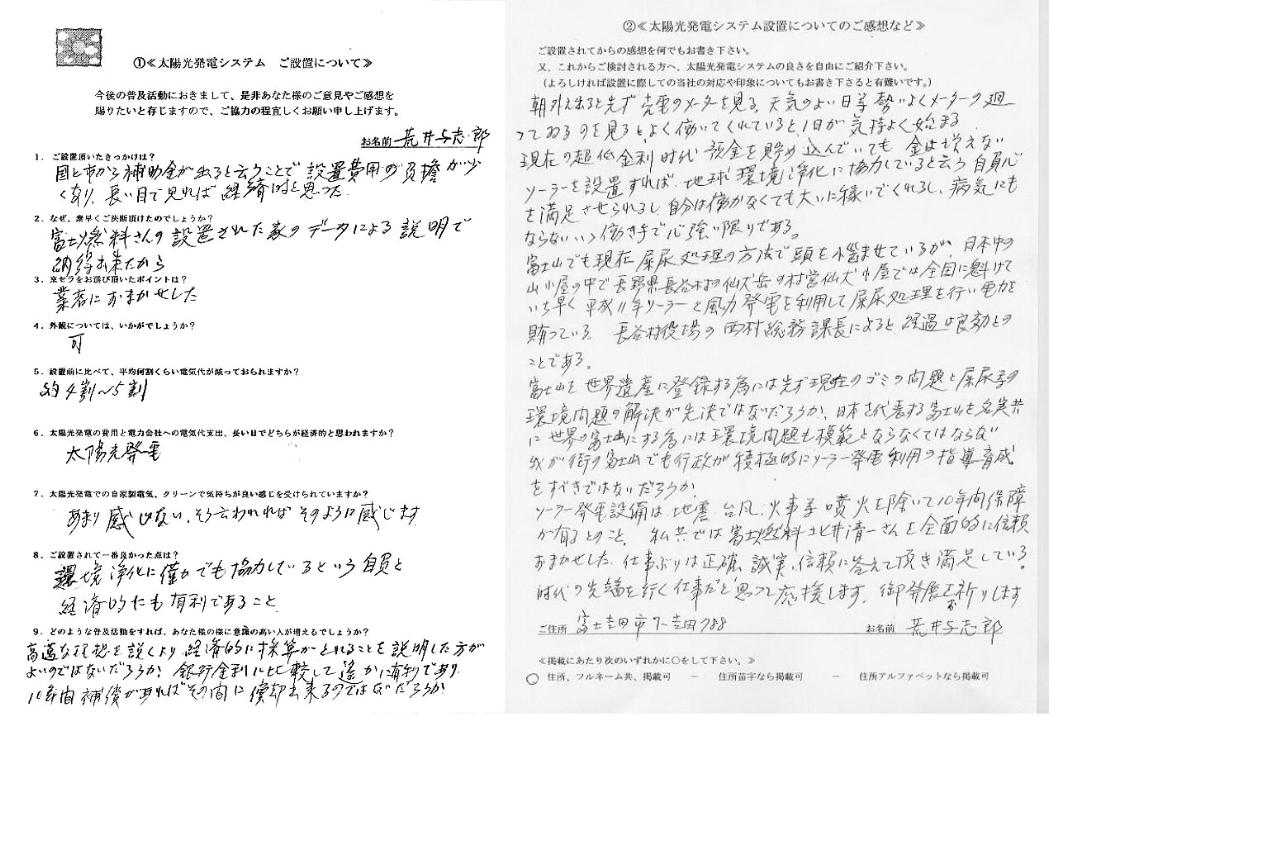 ①≪太陽光発電システム　ご設置について≫
今後の普及活動におきまして、是非あなた様のご意見やご感想を
賜りたいと存じますので、ご協力の程宜しくお願い申し上げます。
お名前 荒井与志郎
1．ご設置頂いたきっかけは？
国と市から補助金が出ると云うことで設置費用の負擔が少
くなり、長い目で見れば経済的と思った
2．なぜ、素早くご決断頂けたのでしょうか？
富士燃料さんの設置された家のデータによる説明で
納得出来たから
3．京セラをお選び頂いたポイントは？
業者におまかせした
4．外観については、いかがでしょうか？
可
5．設置前に比べて、平均何割くらい電気代が減っておられますか？
約4割〜5割
6．太陽光発電の費用と電力会社への電気代支出、長い目でどちらが経済的と思われますか？
太陽光発電
7．太陽光発電での自家製電気、クリーンで気持ちが良い感じを受けられていますか？
あまり感じない、そう言われればそのように感じます
8．ご設置されて一番良かった点は？
環境浄化に僅かでも協力しているという自負と
経済的にも有利であること
9．どのような普及活動をすれば、あなた様の様に意識の高い人が増えるでしょうか？
高邁な理想を説くより経済的に採算がとれることを説明した方が
よいのではないだろうか？ 銀行金利に比較して遥かに有利であり
10年間補償があればその間に償却出来るのではないだろうか
②≪太陽光発電システム設置についてのご感想など≫
ご設置されてからの感想を何でもお書き下さい。
又、これからご検討される方へ、太陽光発電システムの良さを自由にご紹介下さい。
（よろしければ設置に際しての当社の対応や印象についてもお書き下さると有難いです。）
朝外え出ると先ず売電のメーターを見る。天気のよい日等勢いよくメーターの廻
っておるのを見るとよく働いてくれていると、1日が気持よく始まる
現在の超低金利時代 預金を貯め込んでいても 金は増えない
ソーラーを設置すれば、地球環境浄化に協力していると云う自負心
を満足させられるし 自分は働かなくても大いに稼いでくれるし、病気にも
ならないいい働き手で心強い限りである。
富士山でも現在屎尿処理の方法で頭を悩ませているが、日本中の
山小屋の中で長野県長谷村の仙丈岳の村営仙丈小屋では全国に魁けて
いち早く平成11年ソーラーと風力発電を利用して屎尿処理を行い電力を
賄っている 長谷村役場の西村総務課長によると経過は良効との
ことである。
富士山を世界遺産に登録する為には先ず現在のゴミの問題と屎尿等の
環境問題の解決が先決ではないだろうか？ 日本を代表する富士山を名実共
に世界の富士山にする為には環境問題も模範とならなくてはならない
我が街の富士山でも行政が積極的にソーラー発電利用の指導育成
をすべきではないだろうか
ソーラー発電設備は、地震、台風、火事等噴火を除いて10年間保障
が有るとのこと、 私共では富士燃料土井清一さんを全面的に信頼
おまかせした、仕事ぶりは正確、誠実、信頼に答えて頂き満足している。
時代の先端を行く仕事だと思って応援します。御発展をお祈りします
ご住所 富士吉田市下吉田788 お名前 荒井与志郎
≪掲載にあたり次のいずれかに○をして下さい。≫
○ 住所、フルネーム共、掲載可　－　住所苗字なら掲載可　－　住所アルファベットなら掲載可